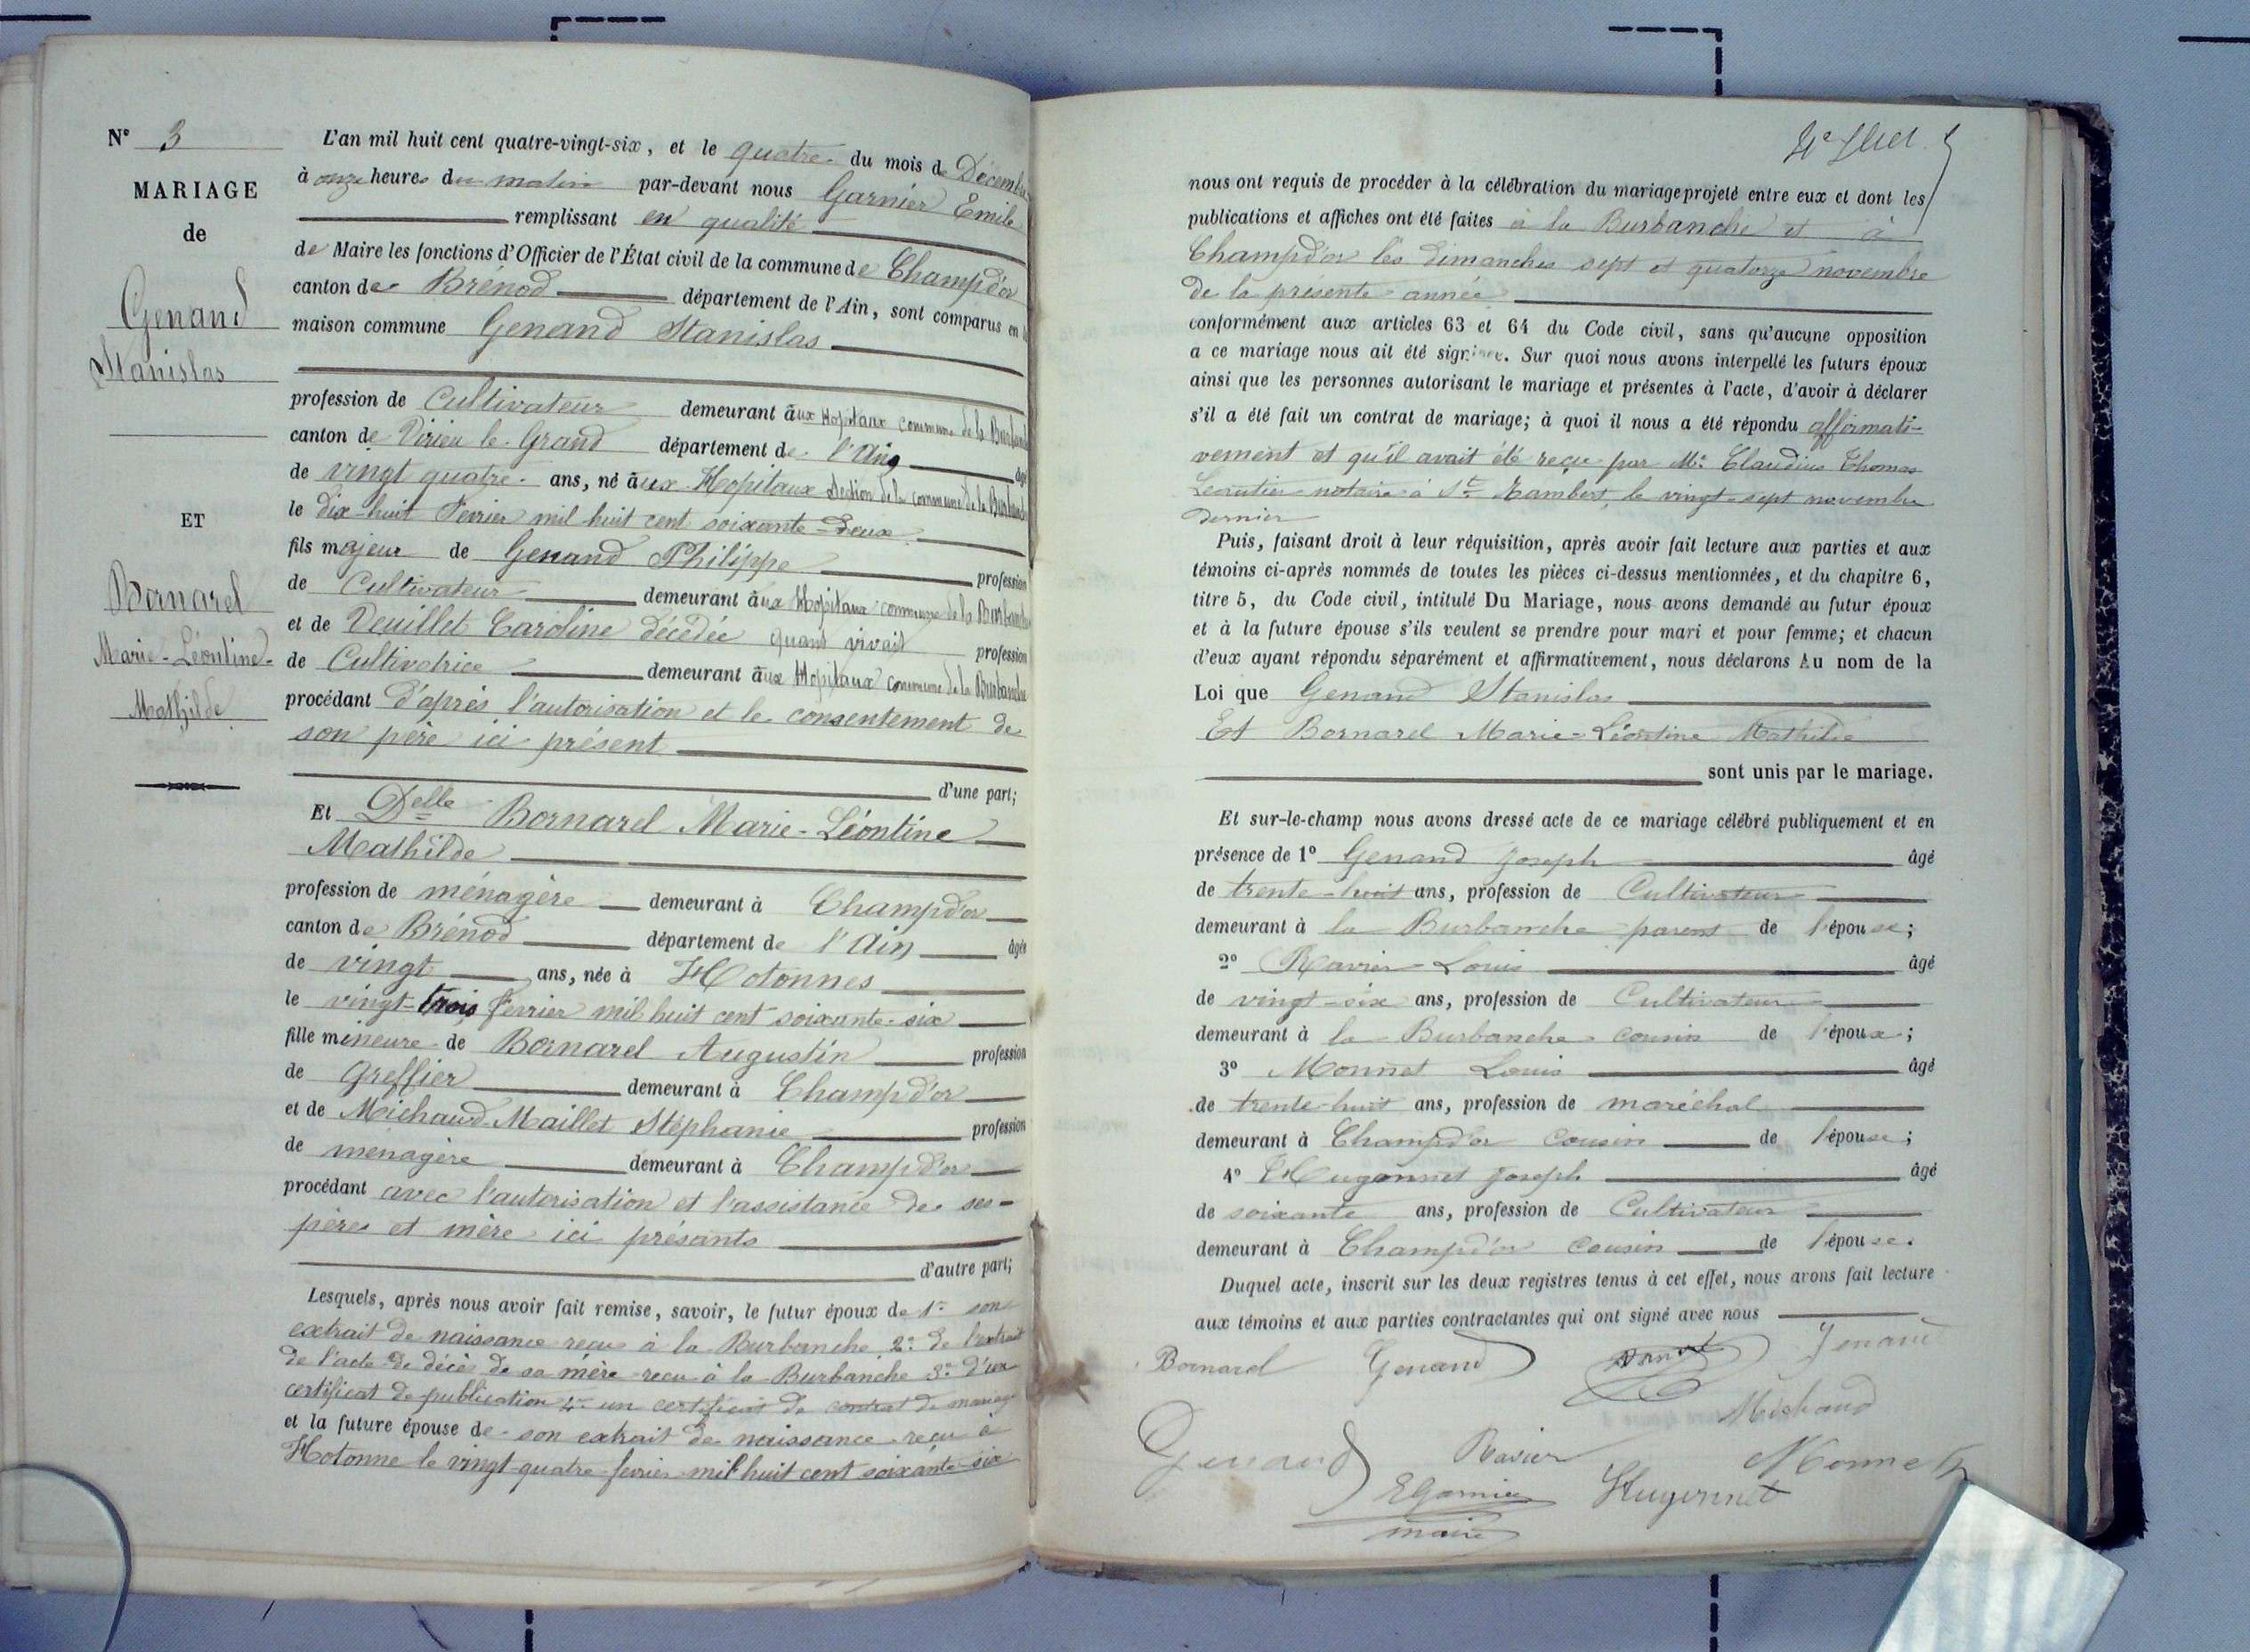 N° 3
MARIAGE
de
Genand
Stanislas
ET
Bornarel
Marie-Léontine-
Mathilde
L'an mil huit cent quatre-vingt-six, et le quatre du mois de Décembre
à onze heures du matin par-devant nous Garnier Emile
remplissant en qualité
de Maire les fonctions d'Officier de l'État civil de la commune de Champd'or
canton de Brénod département de l'Ain, sont comparus en la
maison commune Genand Stanislas
profession de Cultivateur demeurant aux Hopitaux commune de la Burbanche
canton de Virieu le Grand département de l'Ain âgé
de vingt quatre ans, né aux Hopitaux section de la commune de la Burbanche
le dix-huit Fevrier mil huit cent soixante-deux
fils majeur de Genand Philippe profession
de Cultivateur demeurant aux Hopitaux commune de la Burbanche
et de Veuillet Caroline décédée quand vivait profession
de Cultivatrice demeurant aux Hopitaux commune de la Burbanche
procédant d'après l'autorisation et le consentement de
son père ici présent
d'une part;
Et Delle Bornarel Marie-Léontine
Mathilde
profession de ménagère demeurant à Champd'or
canton de Brénod département de l'Ain âgée
de vingt ans, née à Hotonnes
le vingt-trois fevrier mil huit cent soixante-six
fille mineure de Bornarel Augustin profession
de Greffier demeurant à Champd'or
et de Michaud-Maillet Stéphanie profession
de menagère demeurant à Champd'or
procédant avec l'autorisation et l'assistance de ses-
pères et mère ici présants
d'autre part;
Lesquels, après nous avoir fait remise, savoir, le futur époux de 1° son
extrait de naissance reçue à la Burbanche 2° de l'extrait
de l'acte de décès de sa mère reçu à la Burbanche 3° d'un
certificat de publication 4° un certificat de contrat de mariage
et la future épouse de son extrait de naissance reçu à
Hotonne le vingt-quatre fevrier mil huit cent soixante-six
nous ont requis de procéder à la célébration du mariage projeté entre eux et dont les
publications et affiches ont été faites à la Burbanche et à
Champd'or les dimanches sept et quatorze novembre
de la présente année
conformément aux articles 63 et 64 du Code civil, sans qu'aucune opposition
a ce mariage nous ait été signifiée. Sur quoi nous avons interpellé les futurs époux
ainsi que les personnes autorisant le mariage et présentes à l'acte, d'avoir à déclarer
s'il a été fait un contrat de mariage; à quoi il nous a été répondu affirmati-
vement et qu'il avait été reçu par Me Claudius Thomas
notaire à St Rambert, le vingt-sept novembre
dernier
Puis, faisant droit à leur réquisition, après avoir fait lecture aux parties et aux
témoins ci-après nommés de toutes les pièces ci-dessus mentionnées, et du chapitre 6,
titre 5, du Code civil, intitulé Du Mariage, nous avons demandé au futur époux
et à la future épouse s'ils veulent se prendre pour mari et pour femme; et chacun
d'eux ayant répondu séparément et affirmativement, nous déclarons Au nom de la
Loi que Genand Stanislas
Et Bornarel Marie-Léontine Mathilde
sont unis par le mariage.
Et sur-le-champ nous avons dressé acte de ce mariage célébré publiquement et en
présence de 1° Genand Joseph âgé
de trente-huit ans, profession de Cultivateur
demeurant à la Burbanche parent de l'épouse;
2° Ravier Louis âgé
de vingt-six ans, profession de Cultivateur
demeurant à la Burbanche cousin de l'époux;
3° Monnet Louis âgé
de trente-huit ans, profession de maréchal
demeurant à Champd'or Cousin de l'épouse;
4° Hugonnet Joseph âgé
de soixante ans, profession de Cultivateur
demeurant à Champd'or Cousin de l'épouse.
Duquel acte, inscrit sur les deux registres tenus à cet effet, nous avons fait lecture
aux témoins et aux parties contractantes qui ont signé avec nous
Bornarel Genand Genand
Michaud
Genand Ravier Monnet
EGarnier Hugonnet
maire